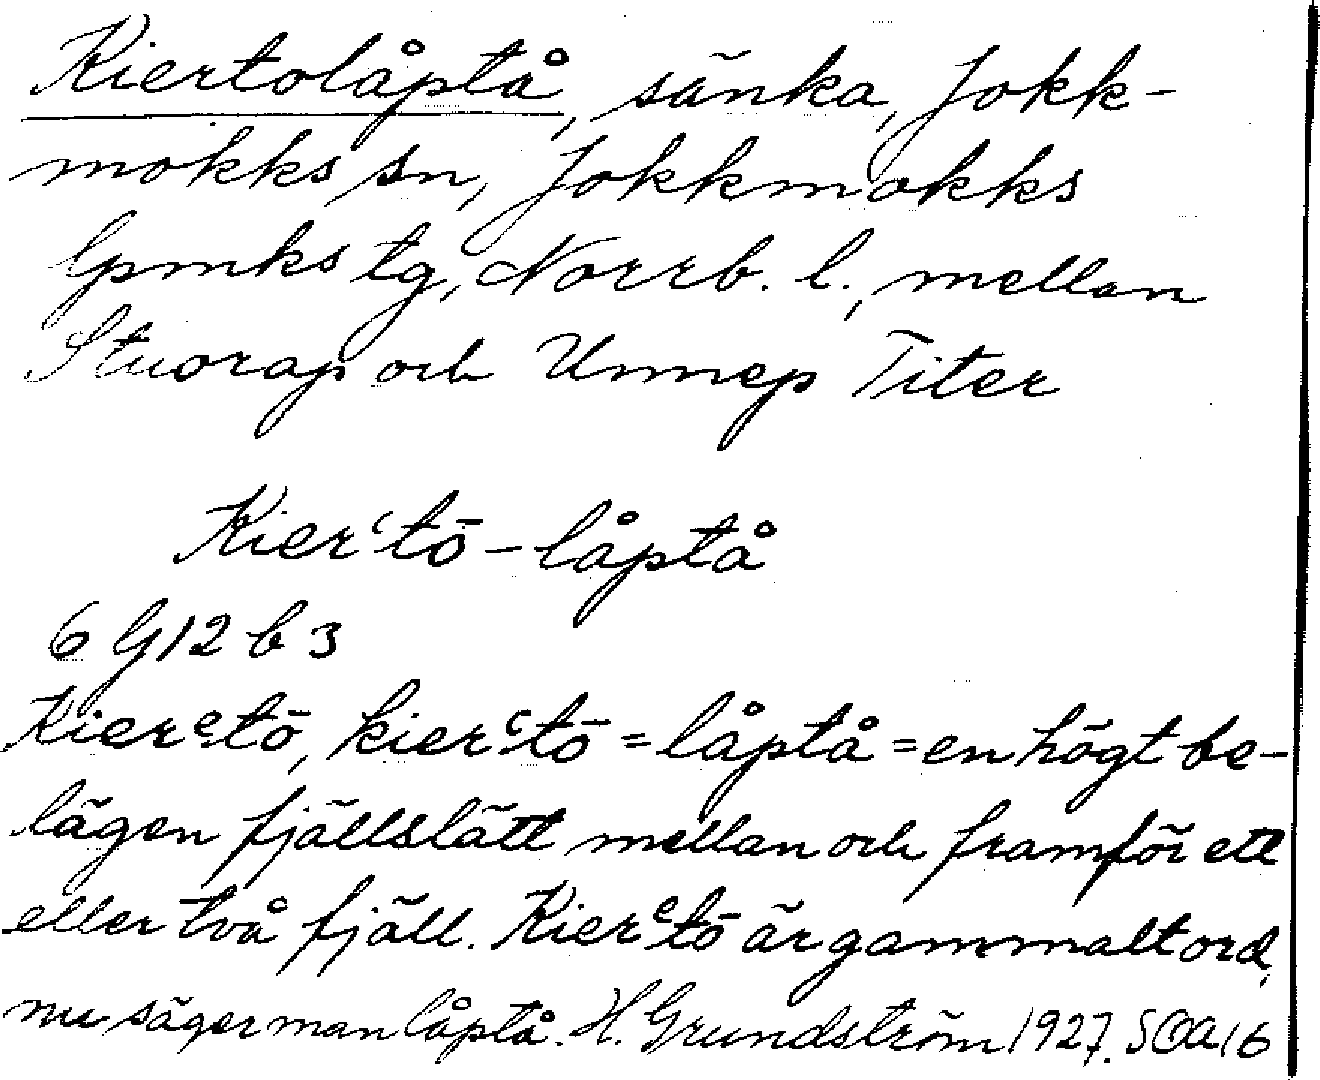 Kiertolåptå, sänka, Jokk-
mokks sn, Jokkmokks
lpmks tg, Norrb. l., mellan
Stuorap och Unnep Titer
Kierʿtō-låptå
6 G 12 b 3
Kierᵉtō, kierʿtō = låptå = en högt be-
lägen fjällslätt mellan och framför ett
eller två fjäll. Kierᵉtō är gammalt ord,
nu säger man låptå. H. Grundström 1927. SOA 16